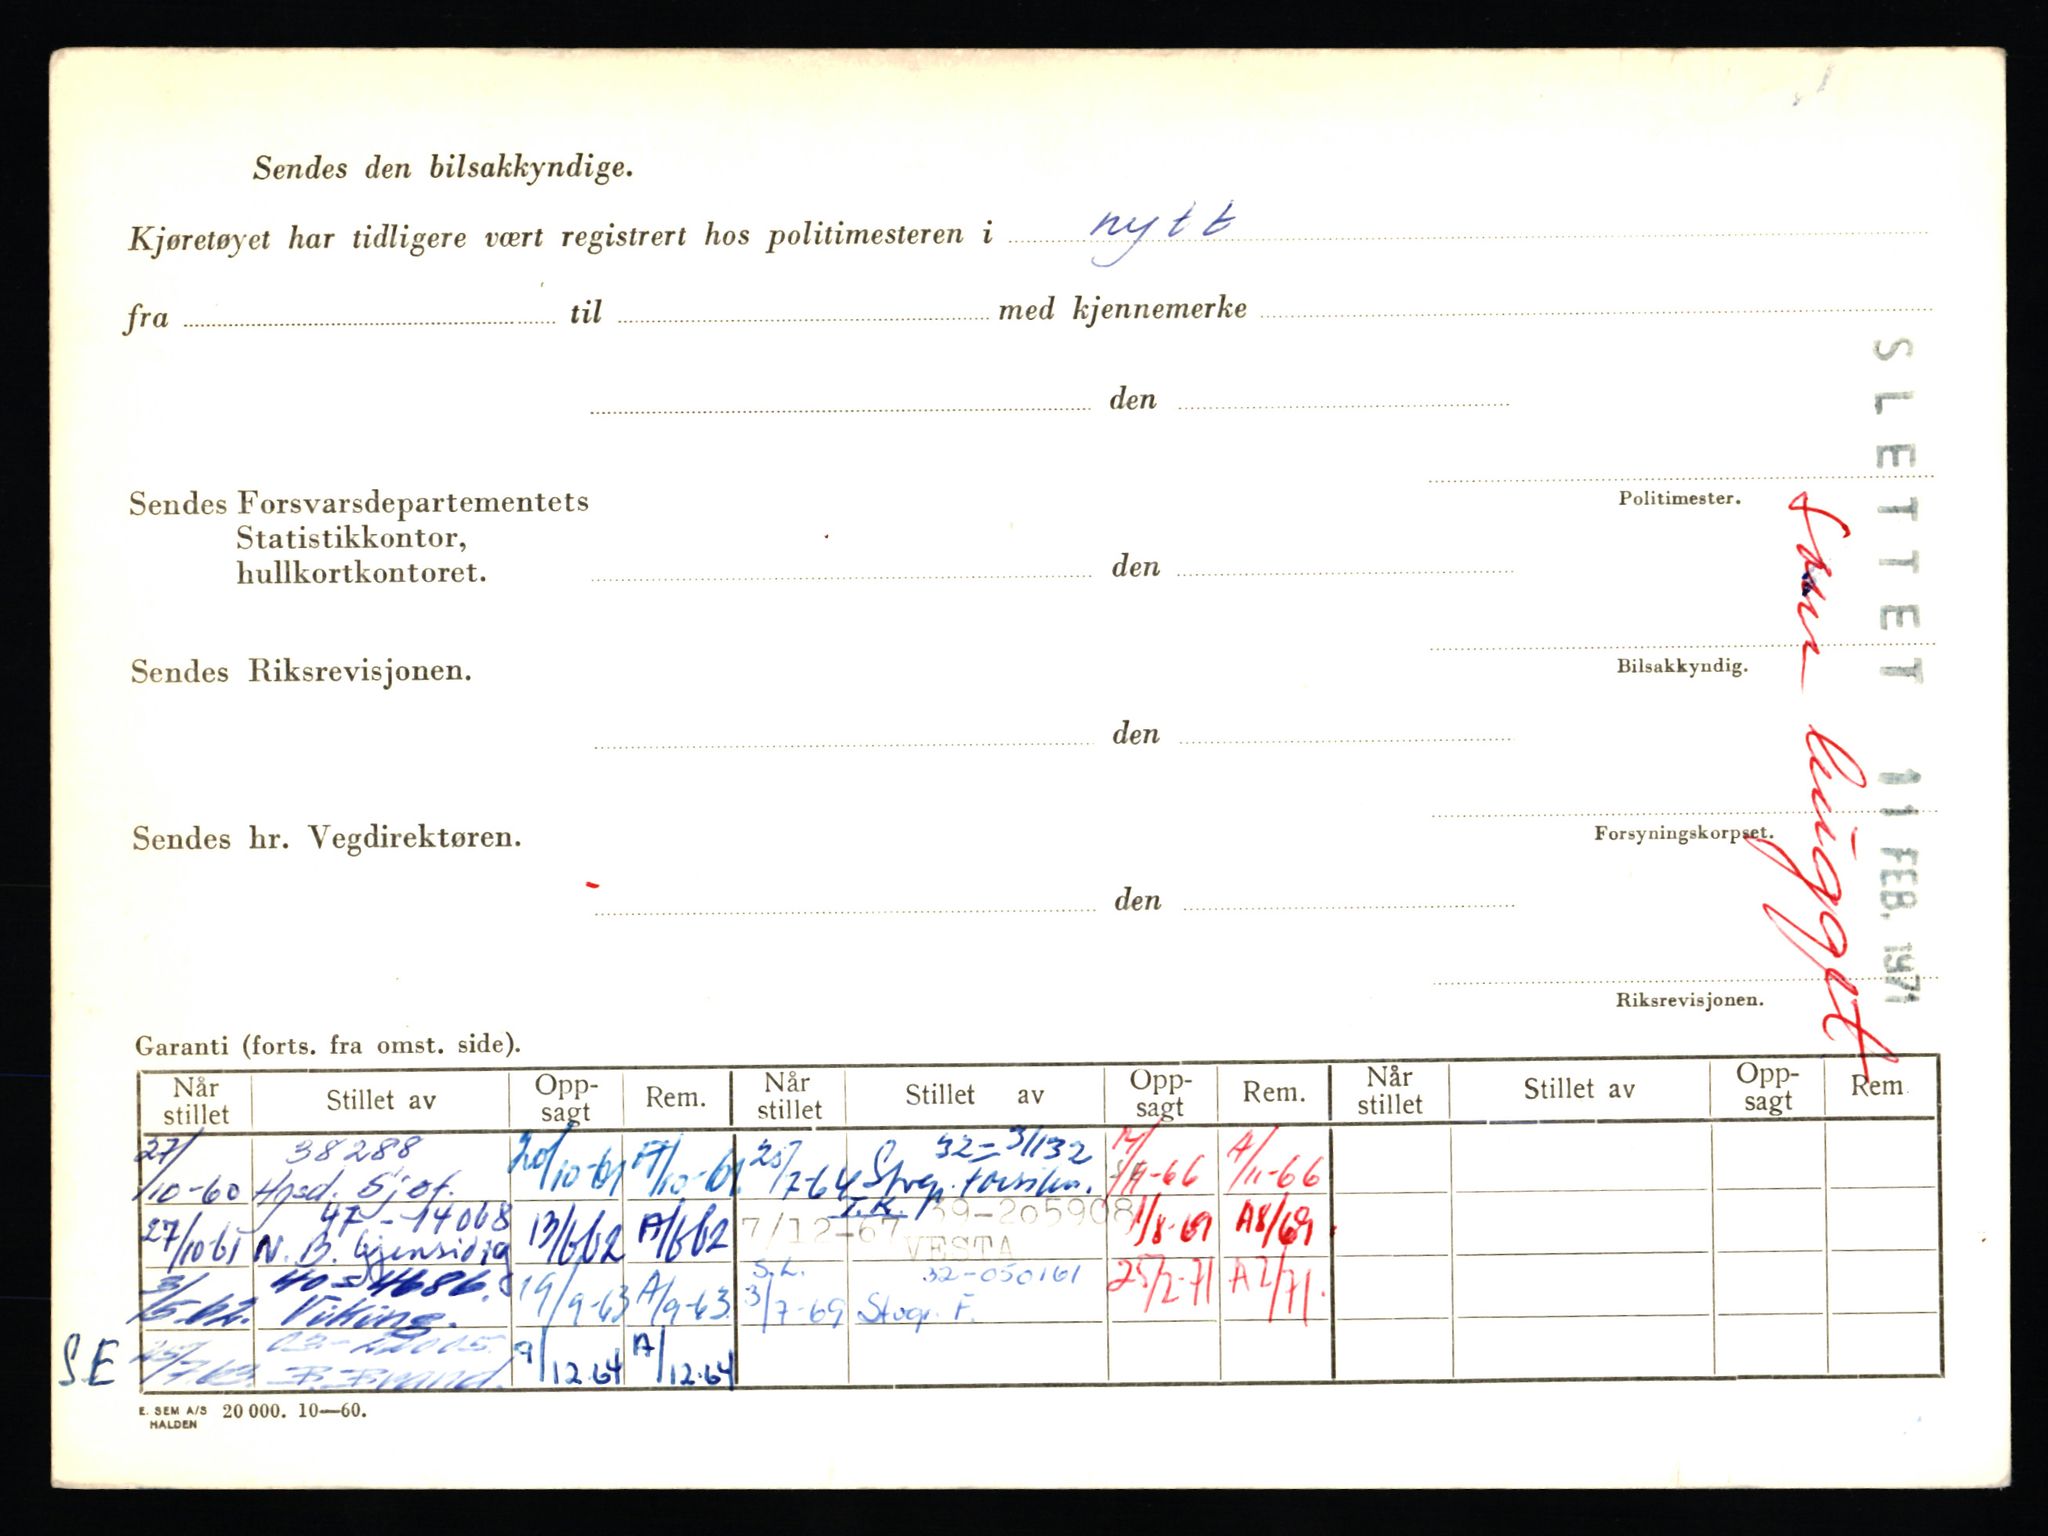 Sendes den bilsakkyndige.
Kjøretøyet har tidligere vært registrert hos politimesteren i nytt
fra til med kjennemerke
den
Politimester.
Sendes Forsvarsdepartementets
Statistikkontor,
hullkortkontoret.
den
Bilsakkyndig.
Sendes Riksrevisjonen.
den
Forsyningskorpset.
Sendes hr. Vegdirektøren.
den
Riksrevisjonen.
SLETTET 11 FEB. 1971
Garanti (forts. fra omst. side).
Når stillet Stillet av Opp-sagt Rem. Når stillet Stillet av Opp-sagt Rem. Når stillet Stillet av Opp-sagt Rem
27/10-60 38288 Hgsd. Sjøf. 20/10-61 A/10-61
27/10-61 47-14068 N. B. Gjensidig 13/6 62 A/6 62
3/5.62. 40-4686. Viking. 19/9-63 A/9-63
SE 25/7.63. B. Brand. 9/12.64 A/12.64
25/7-64 32-3/132 A/11-66
7/12-67 39-205908 VESTA 1/8-69 A8/69.
S.L. 3/7-69 32-050161 Stvgr. F. 25/2-71 A2/71.
E. SEM A/S
HALDEN
20 000. 10—60.